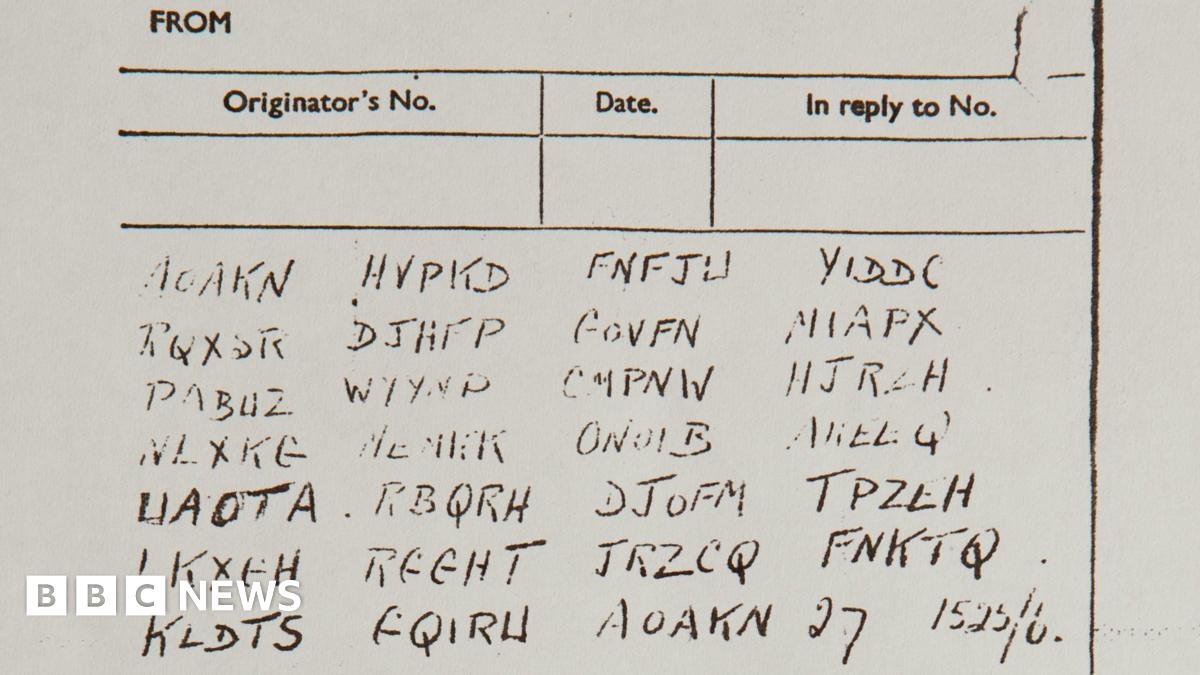 FROM
Originator's No. Date. In reply to No.
AOAKN HVPKD FNFJU YIDDC
RQXSR DJHFP GOVFN MIAPX
PABUZ WYYNP CMPNW HJRZH
NLXKG MEMKK ONOIB AKEEQ
UAOTA RBQRH DJOFM TPZEH
LKXGH RGGHT JRZCQ FNKTQ
KLDTS GQIRU AOAKN 27 1525/6.
BBC NEWS